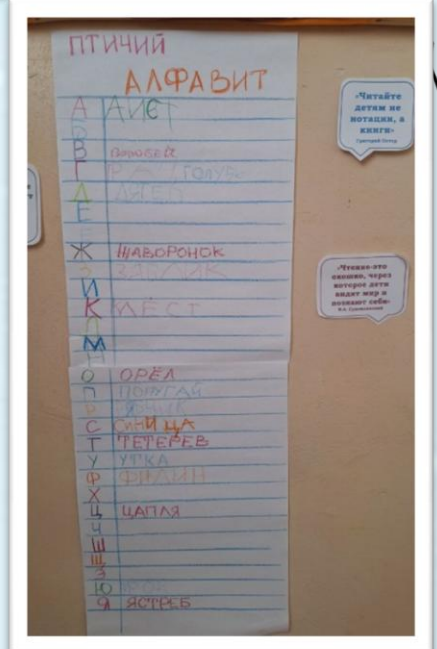 ПТИЧИЙ
АЛФАВИТ
А АИСТ
Б
В воробей
Г ГОЛУБЬ
Д ДЯТЕЛ
Е
Ж ЖАВОРОНОК
З ЗЯБЛИК
И
К КЛЁСТ
Л
М
Н
О ОРЁЛ
П ПОПУГАЙ
Р
С СИНИЦА
Т ТЕТЕРЕВ
У УТКА
Ф ФИЛИН
Х
Ц ЦАПЛЯ
Ч
Ш
Щ
Э
Ю
Я ЯСТРЕБ
«Читайте
детям не
нотации, а
книги»
Григорий Остер
«Чтение-это
окошко, через
которое дети
видят мир и
познают себя»
В.А. Сухомлинский